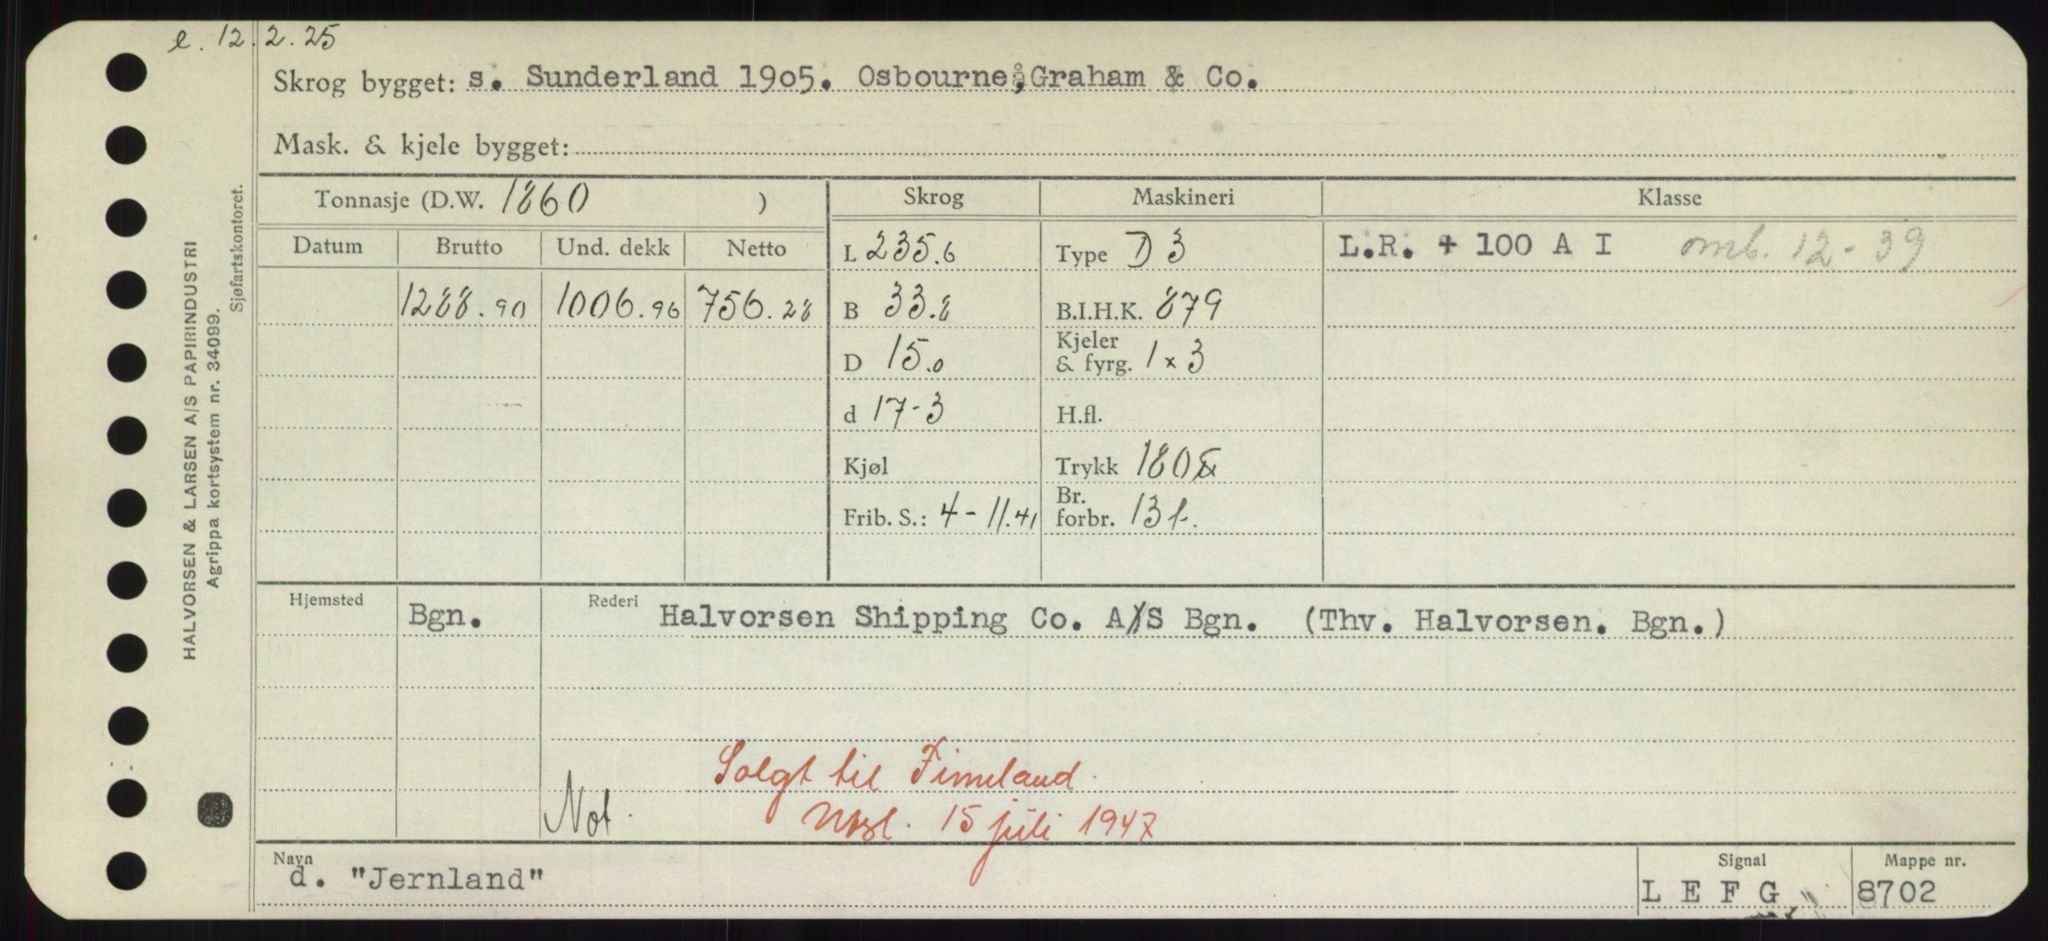 e. 12.2.25
Skrog bygget: s. Sunderland 1905. Osbourne, Graham & Co.
Mask. & kjele bygget:
Tonnasje (D.W. 1860 )
Skrog
Maskineri
Klasse
Datum Brutto Und. dekk Netto
L 235.6
Type D 3
L.R. + 100 A I omb. 12-39
1288.90 1006.96 756.28
B 33.8
B.I.H.K. 879
D 15.0
Kjeler
& fyrg. 1 x 3
d 17-3
H.fl.
Kjøl
Trykk 180
Frib. S.: 4-11.41
Br.
forbr. 13 t.
Hjemsted Bgn. Rederi Halvorsen Shipping Co. A/S Bgn. (Thv. Halvorsen. Bgn.)
Solgt til Finnland.
Not. 15 juli 1947
Navn
d. "Jernland"
Signal
L E F G
Mappe nr.
8702
HALVORSEN & LARSEN A/S PAPIRINDUSTRI
Agrippa kortsystem nr. 34099.
Sjøfartskontoret.